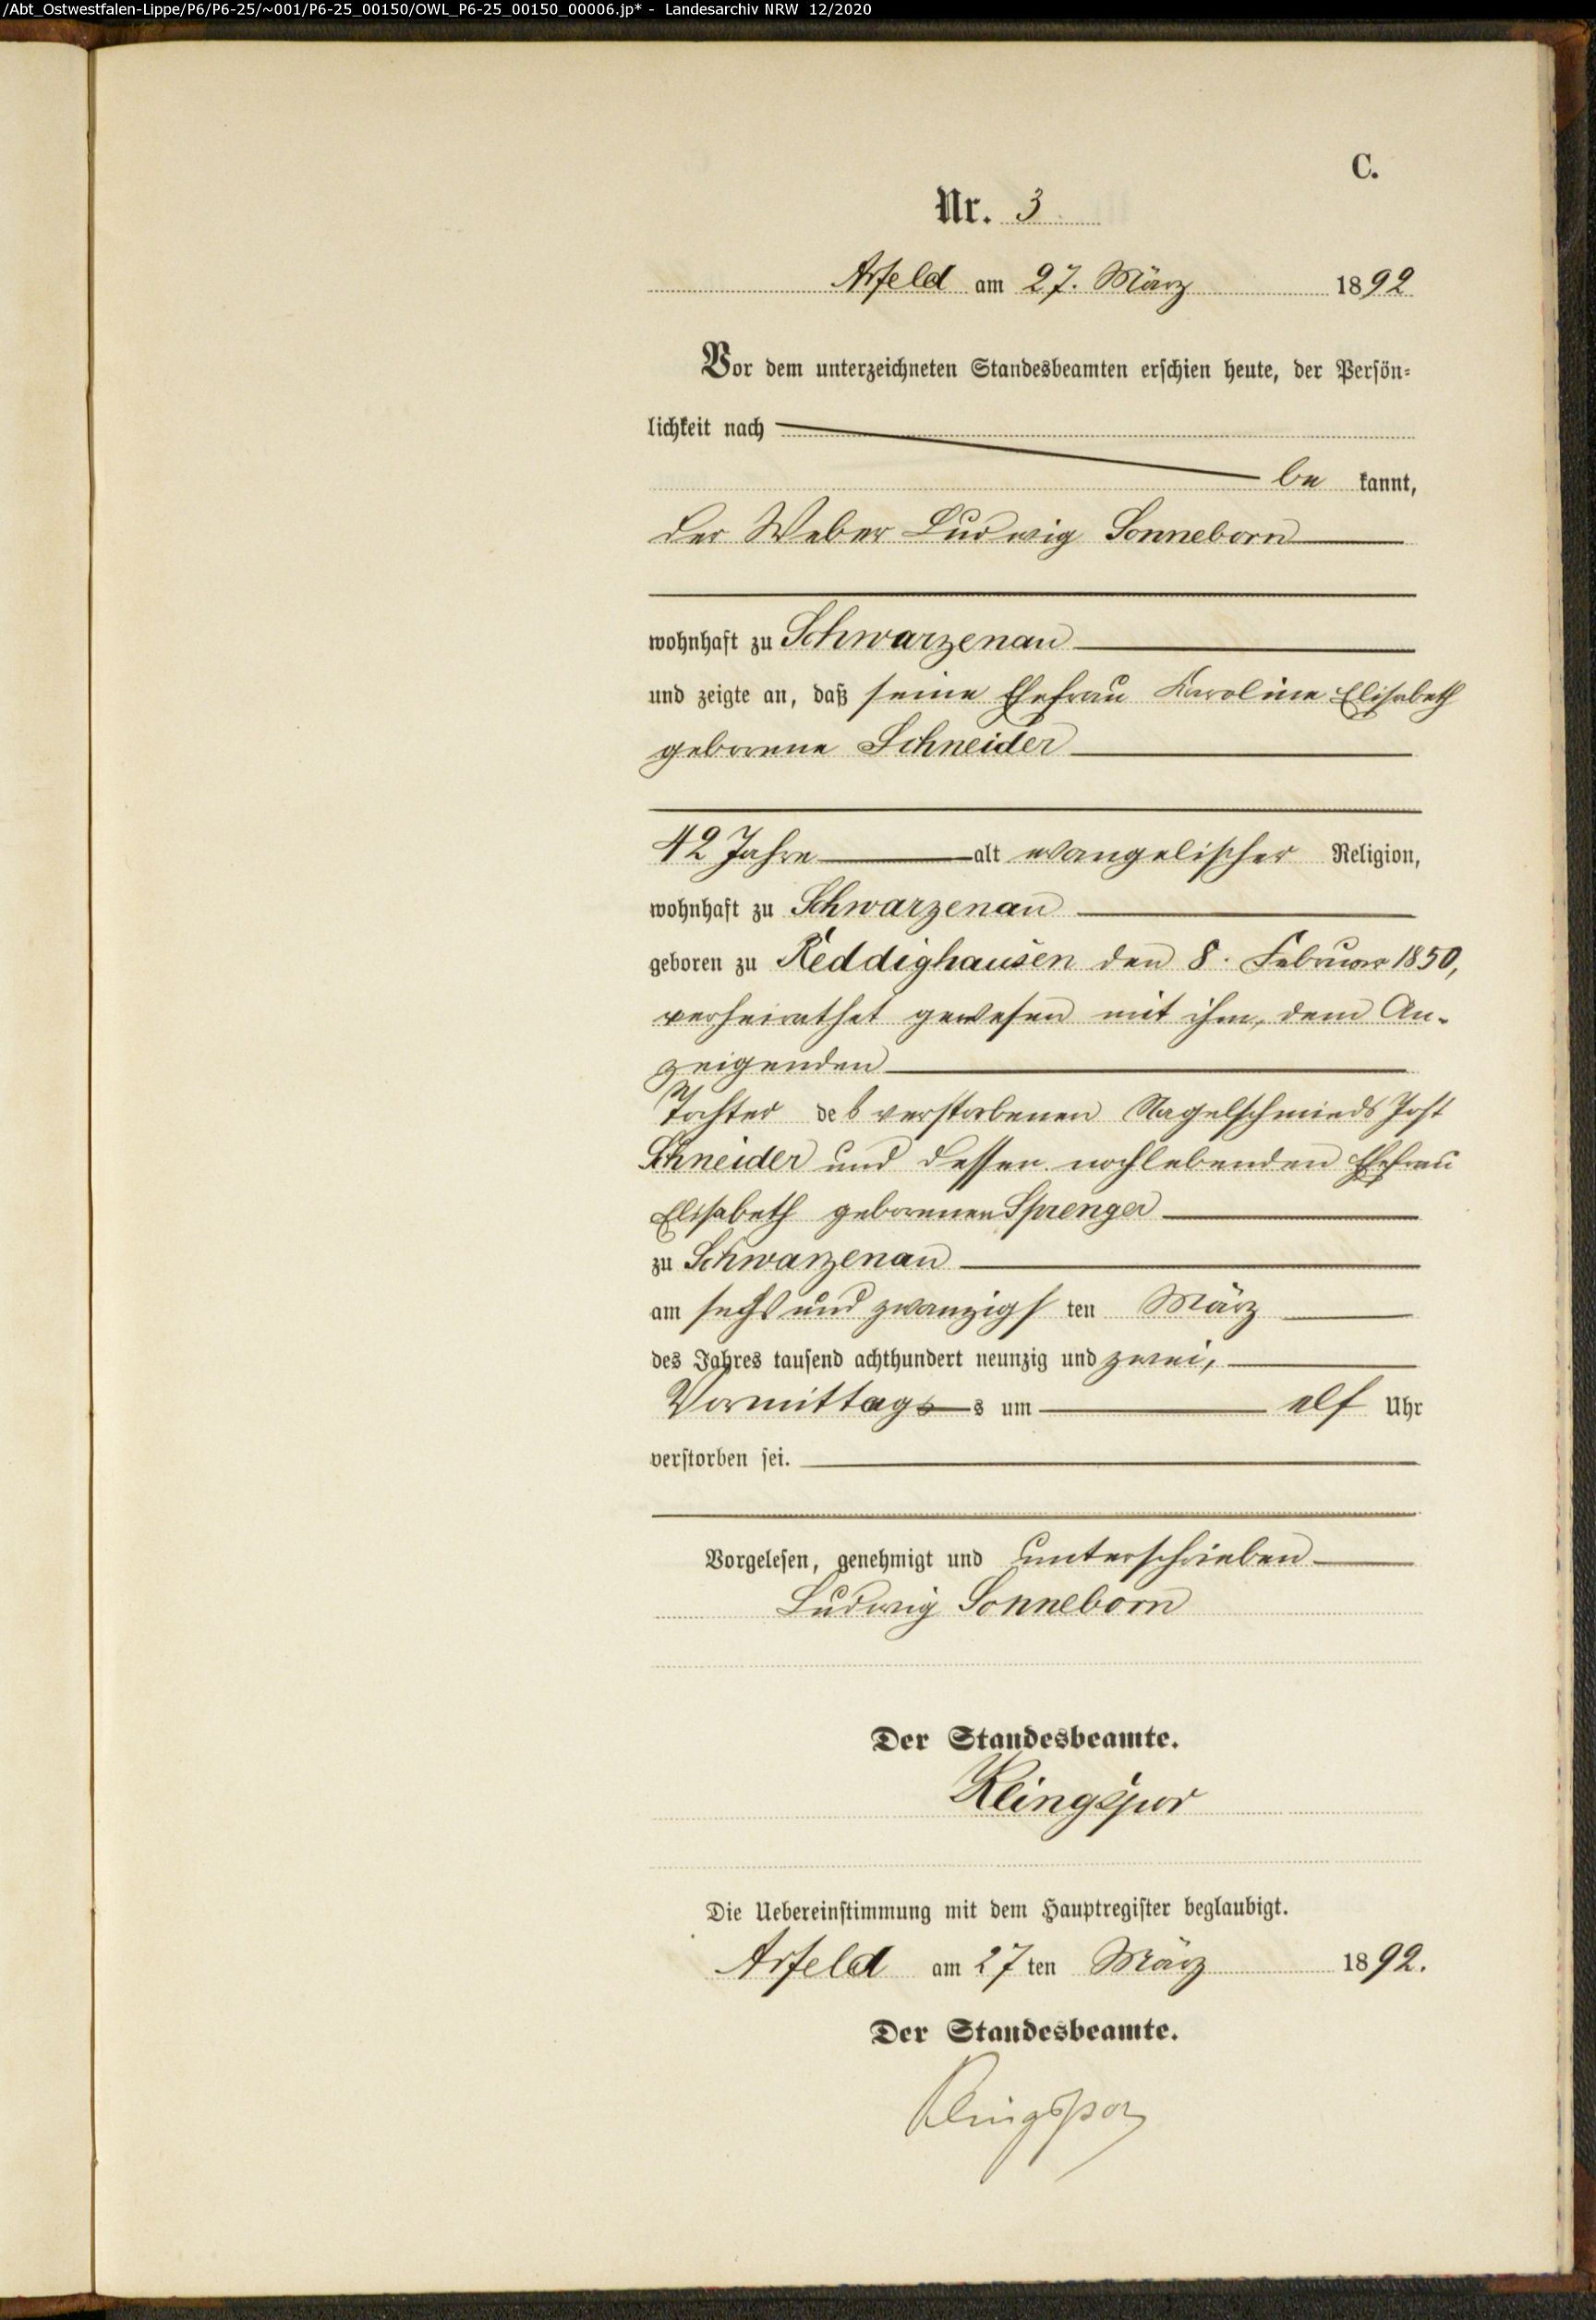 /Abt_Ostwestfalen-Lippe/P6/P6-25/~001/P6-25_00150/OWL_P6-25_00150_00006.jp* - Landesarchiv NRW 12/2020
C.
Nr. 3
Arfeld am 27. März 1892
Vor dem unterzeichneten Standesbeamten erschien heute, der Persön-
lichkeit nach
be kannt,
der Weber Ludwig Sonneborn
wohnhaft zu Schwarzenau
und zeigte an, daß seine Ehefrau Karoline Elisabeth
geborene Schneider
42 Jahre alt evangelischer Religion,
wohnhaft zu Schwarzenau
geboren zu Reddighausen den 8. Februar 1850,
verheirathet gewesen mit ihm, dem An-
zeigenden
Tochter des verstorbenen Nagelschmieds Jost
Schneider und dessen nochlebenden Ehefrau
Elisabeth geborenen Sprenger
zu Schwarzenau
am sechs und zwanzigs ten März
des Jahres tausend achthundert neunzig und zwei,
Vormittags s um elf Uhr
verstorben sei.
Vorgelesen, genehmigt und unterschrieben
Ludwig Sonneborn
Der Standesbeamte.
Klingspor
Die Uebereinstimmung mit dem Hauptregister beglaubigt.
Arfeld am 27 ten März 1892.
Der Standesbeamte.
Klingspor